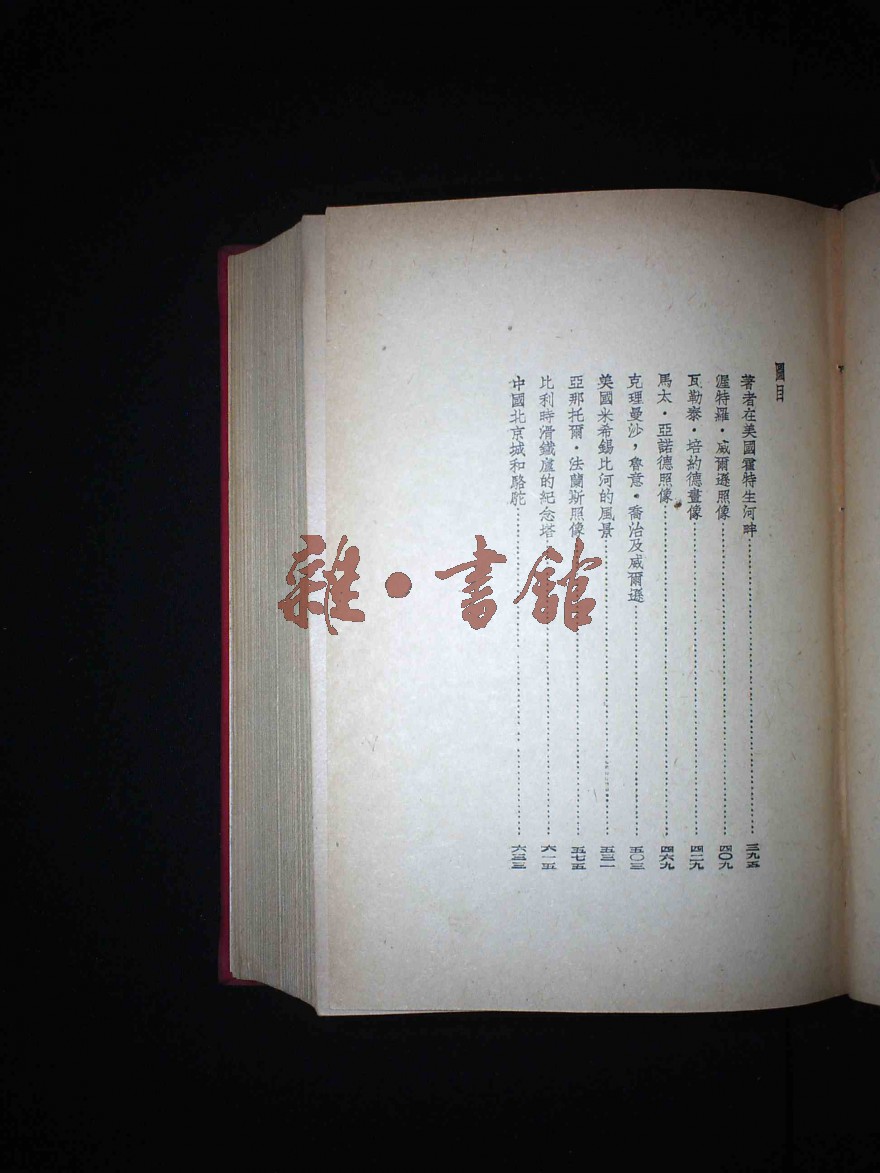 圖目
著者在美國霍特生河畔……三九五
渥特羅·威爾遜照像……四〇九
瓦勒泰·培約德畫像……四二九
馬太·亞諾德照像……四六九
克理曼沙，魯意·喬治及威爾遜……五〇三
美國米希錫比河的風景……五三一
亞那托爾·法蘭斯照像……五七五
比利時滑鐵盧的紀念塔……六一五
中國北京城和駱駝……六三三
雜·書館